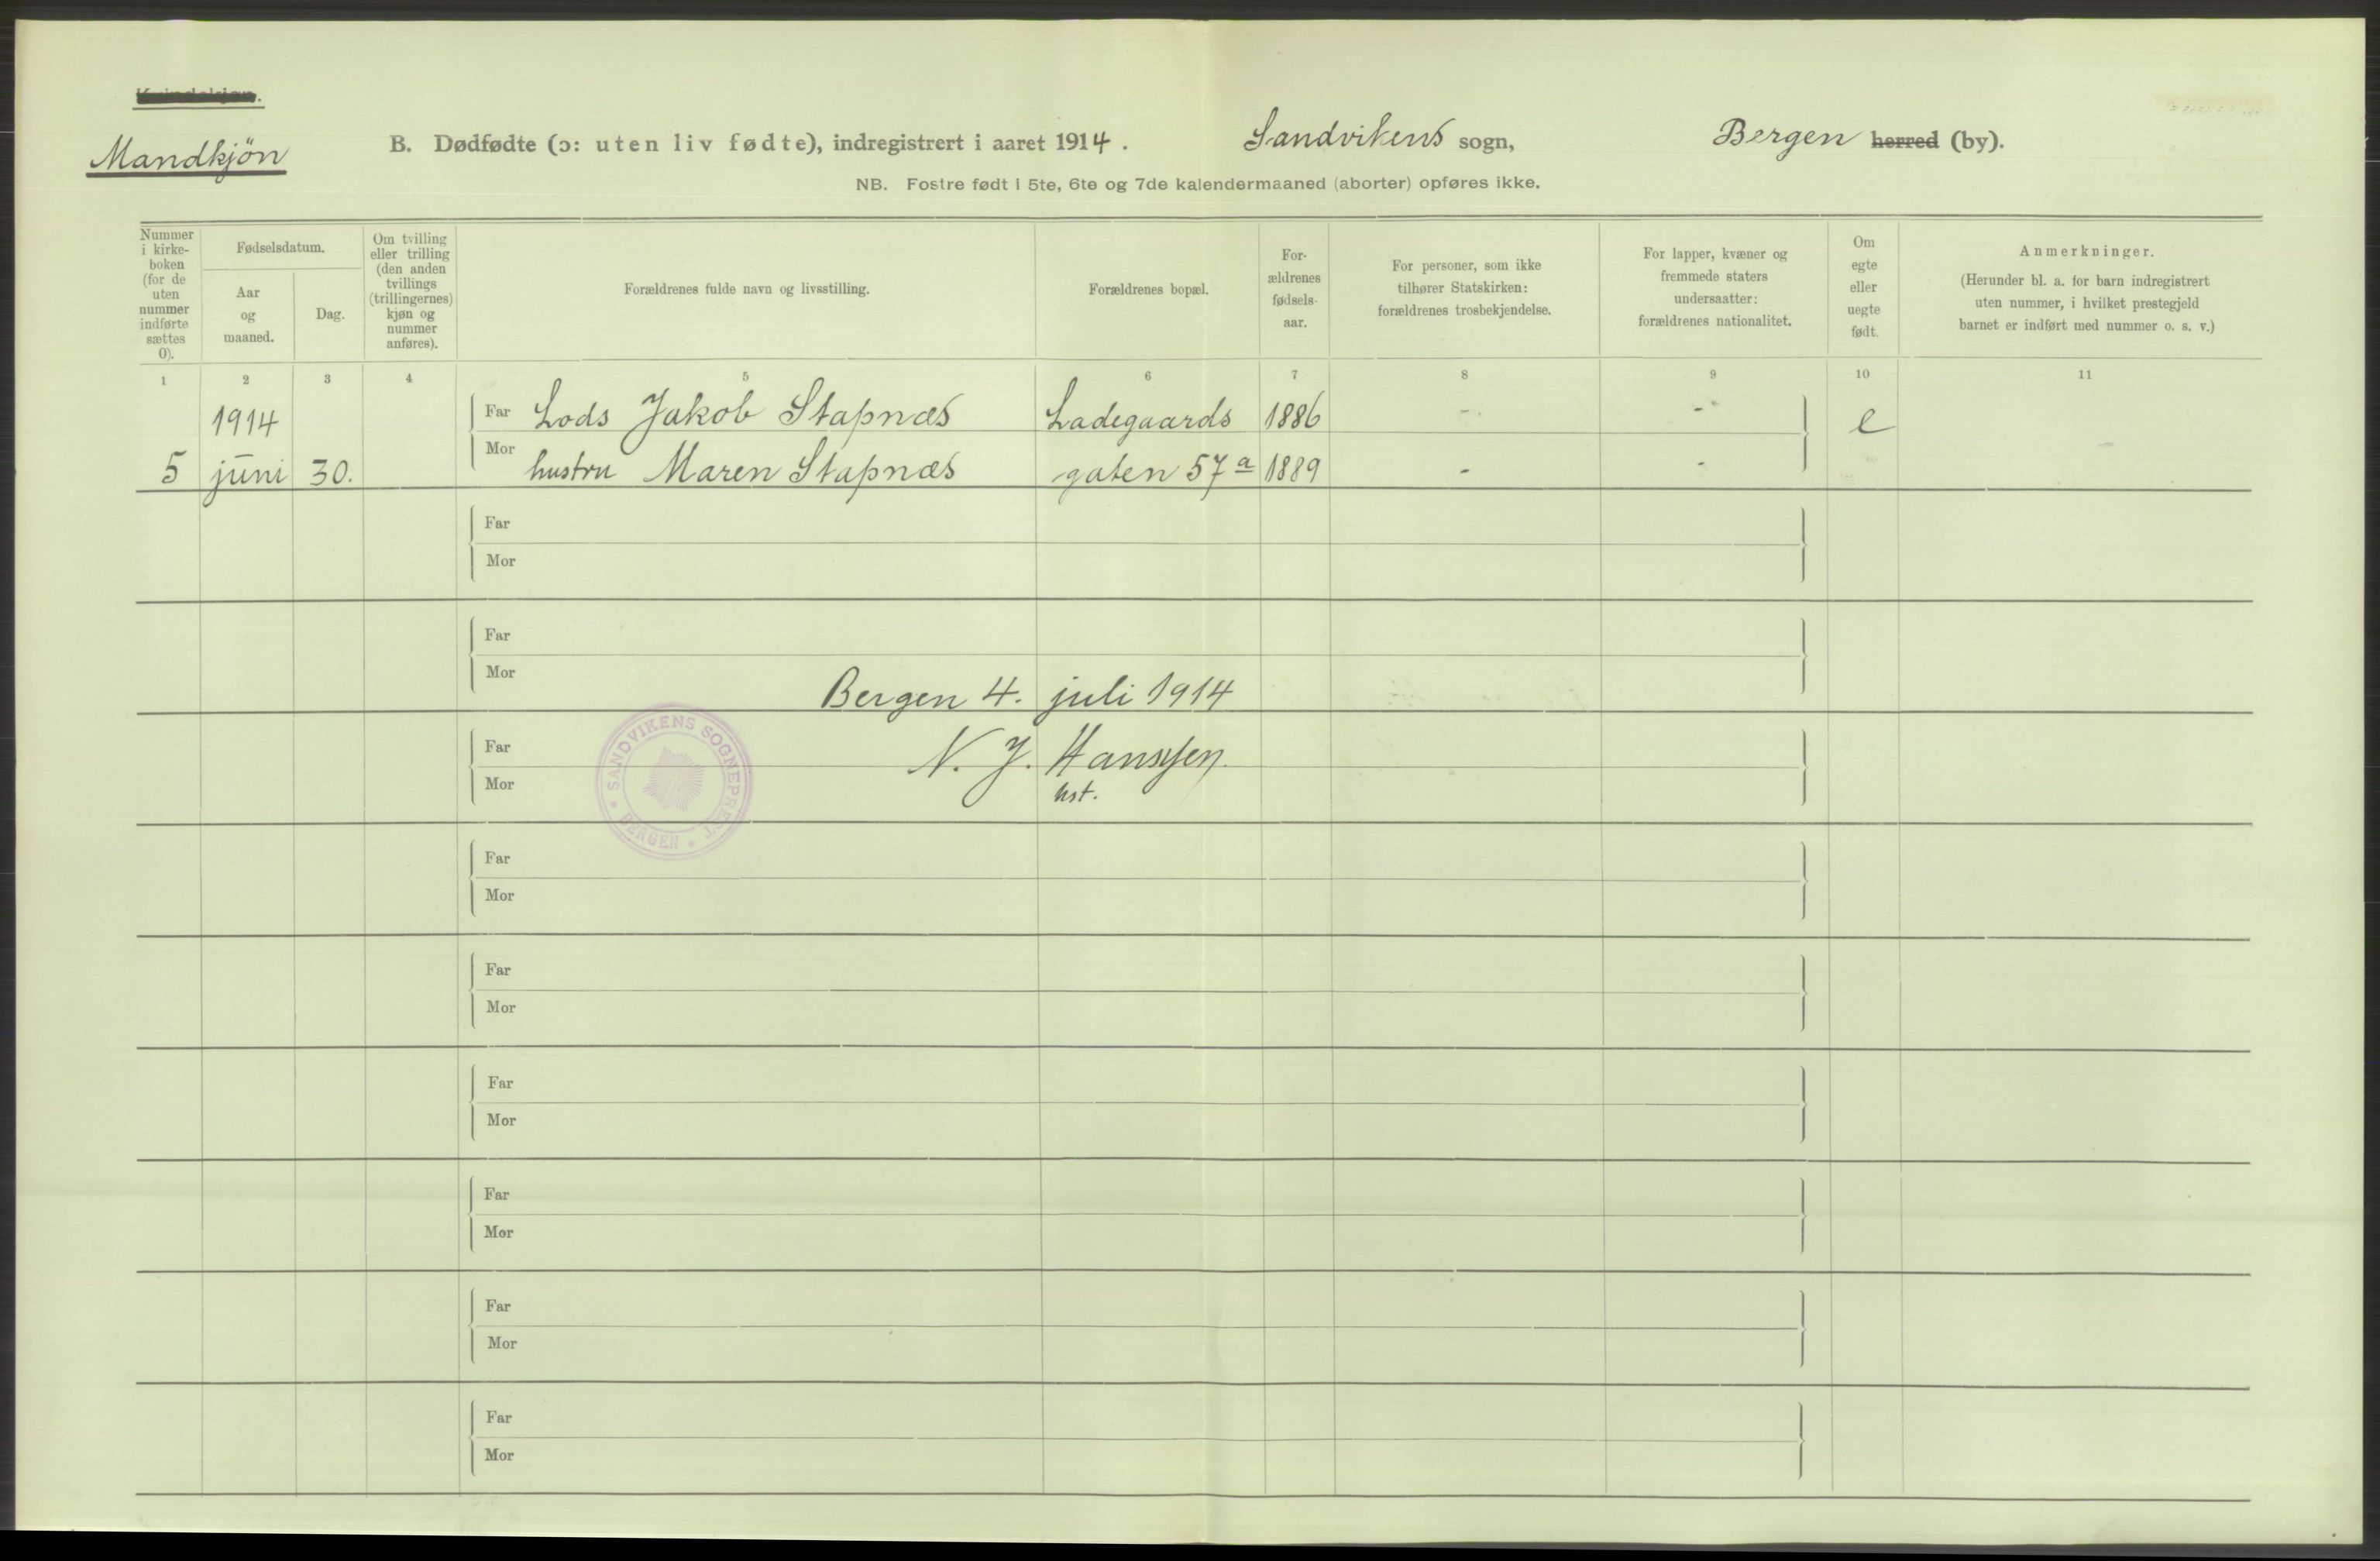 Mandkjön
B. Dødfødte (ɔ: uten liv fødte), indregistrert i aaret 1914. Sandvikens sogn, Bergen herred (by).
NB. Fostre født i 5te, 6te og 7de kalendermaaned (aborter) opføres ikke.
Nummer
i kirke-
boken
(for de
uten
nummer
indførte
sættes
0).
Fødselsdatum.
Aar
og
maaned.
Dag.
Om tvilling
eller trilling
(den anden
tvillings
(trillingernes)
kjøn og
nummer
anføres).
Forældrenes fulde navn og livsstilling.
Forældrenes bopæl.
For-
ældrenes
fødsels-
aar.
For personer, som ikke
tilhører Statskirken:
forældrenes trosbekjendelse.
For lapper, kvæner og
fremmede staters
undersaatter:
forældrenes nationalitet.
Om
egte
eller
uegte
født.
Anmerkninger.
(Herunder bl. a. for barn indregistrert
uten nummer, i hvilket prestegjeld
barnet er indført med nummer o. s. v.)
1 2 3 4 5 6 7 8 9 10 11
1914 Far Lods Jakob Stapnæs Ladegaards 1886 - - e
5 juni 30. Mor hustru Maren Stapnæs gaten 57 a 1889 - - -
Far
Mor
Far
Mor
Bergen 4. juli 1914
Far N. J. Hanssen
Mor hst.
SANDVIKENS SOGNEPREST * BERGEN *
Far
Mor
Far
Mor
Far
Mor
Far
Mor
Far
Mor
Far
Mor